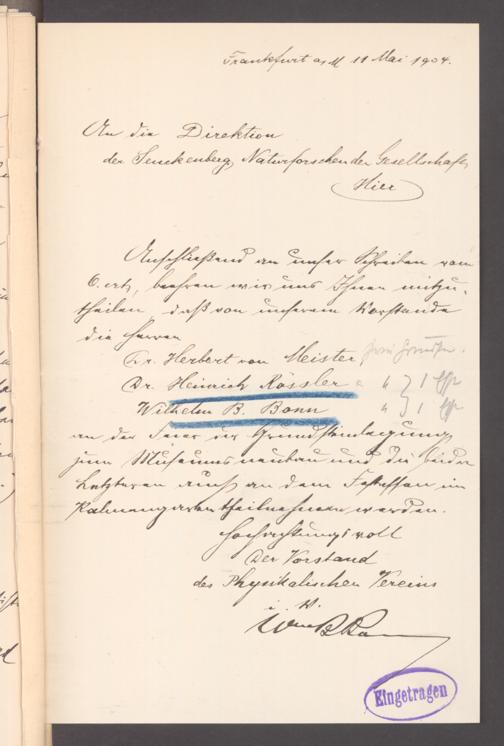 Frankfurt a/M 11 Mai 1904.
An die Direktion
der Senckenberg. Naturforschenden Gesellschaft,
Hier
Anschließend an unser Schreiben vom
6. crt, beehren wir uns Ihnen mitzu-
theilen, daß von unserem Vorstande
die Herren
Dr. Herbert von Meister
Dr. Heinrich Rössler
Wilhelm B. Bonn
an der Feier der Grundsteinlegung
zum Museumsneubau und die beiden
Letzteren auch an dem Festessen im
Palmengarten theilnehmen werden.
Hochachtungsvoll
Der Vorstand
des Physikalischen Vereins
i. A.
Eingetragen